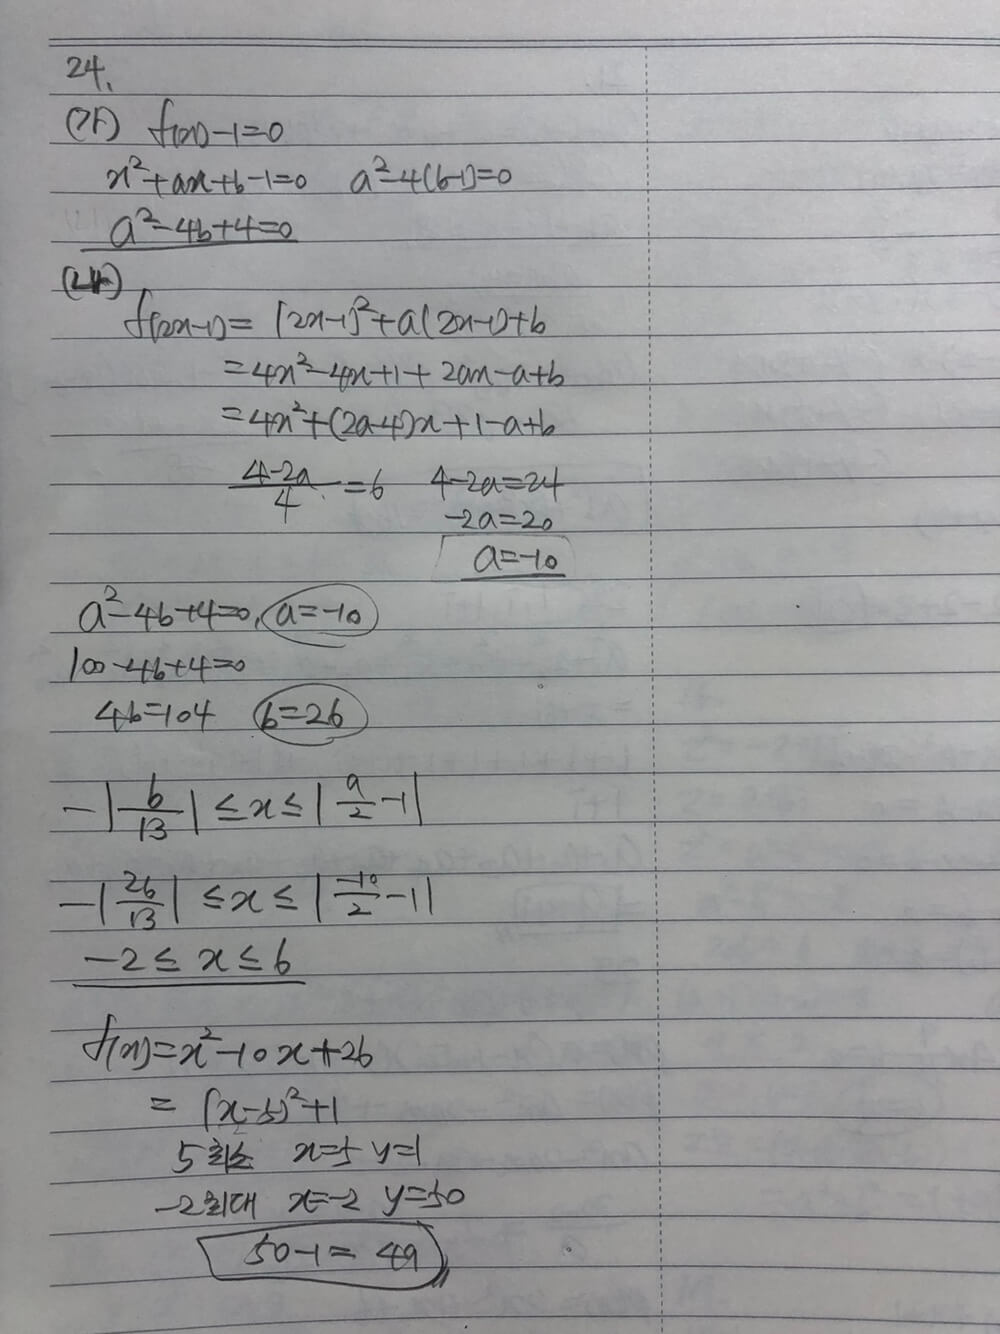 24.
(가) f(x)-1=0
x²+ax+b-1=0 a²-4(b-1)=0
a²-4b+4=0
(나)
f(2x-1)=(2x-1)²+a(2x-1)+b
=4x²-4x+1+2ax-a+b
=4x²+(2a-4)x+1-a+b
(4-2a)/4=6 4-2a=24
-2a=20
a=-10
a²-4b+4=0, a=-10
100-4b+4=0
4b=104 b=26
-|b/13| ≤x≤ |a/2-1|
-|26/13| ≤x≤ |-10/2-1|
-2≤x≤6
f(x)=x²-10x+26
=(x-5)²+1
5최소 x=5 y=1
-2최대 x=-2 y=50
50-1=49